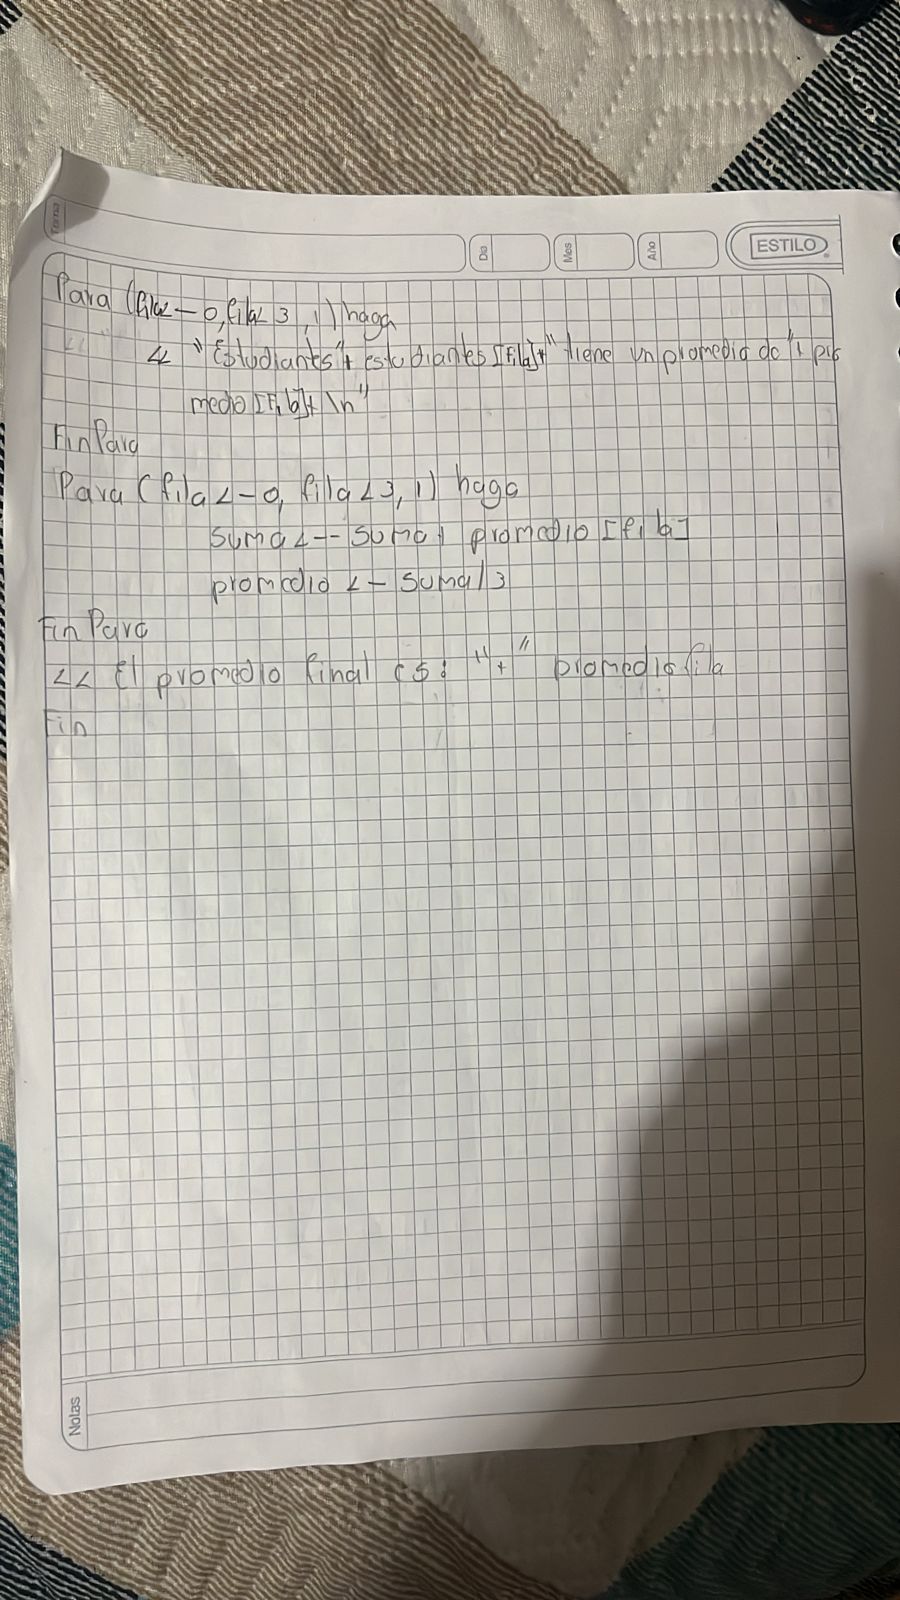 Tema
Dia
Mes
Año
ESTILO
Para (fila<-0, fila<3, 1) haga
<< "Estudiantes"+ estudiantes [Fila]+" tiene un promedio de"+ pro
medio [Fila]+ \n"
FinPara
Para (fila<-0, fila<3, 1) haga
suma<-- suma+ promedio [fila]
promedio <- suma/3
Fin Para
<< El promedio final es: "+" promedio fila
Fin
Notas